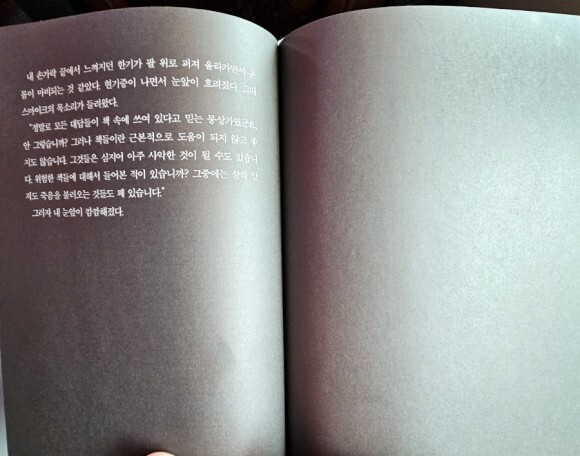 내 손가락 끝에서 느껴지던 한기가 팔 위로 퍼져 올라가면서 온
몸이 마비되는 것 같았다. 현기증이 나면서 눈앞이 흐려졌다. 그때
스마이크의 목소리가 들려왔다.
“정말로 모든 대답들이 책 속에 쓰여 있다고 믿는 몽상가였군요,
안 그렇습니까? 그러나 책들이란 근본적으로 도움이 되지 않고 좋
지도 않습니다. 그것들은 심지어 아주 사악한 것이 될 수도 있습니
다. 위험한 책들에 대해서 들어본 적이 있습니까? 그중에는 살짝 만
져도 죽음을 불러오는 것들도 꽤 있습니다.”
그러자 내 눈앞이 캄캄해졌다.